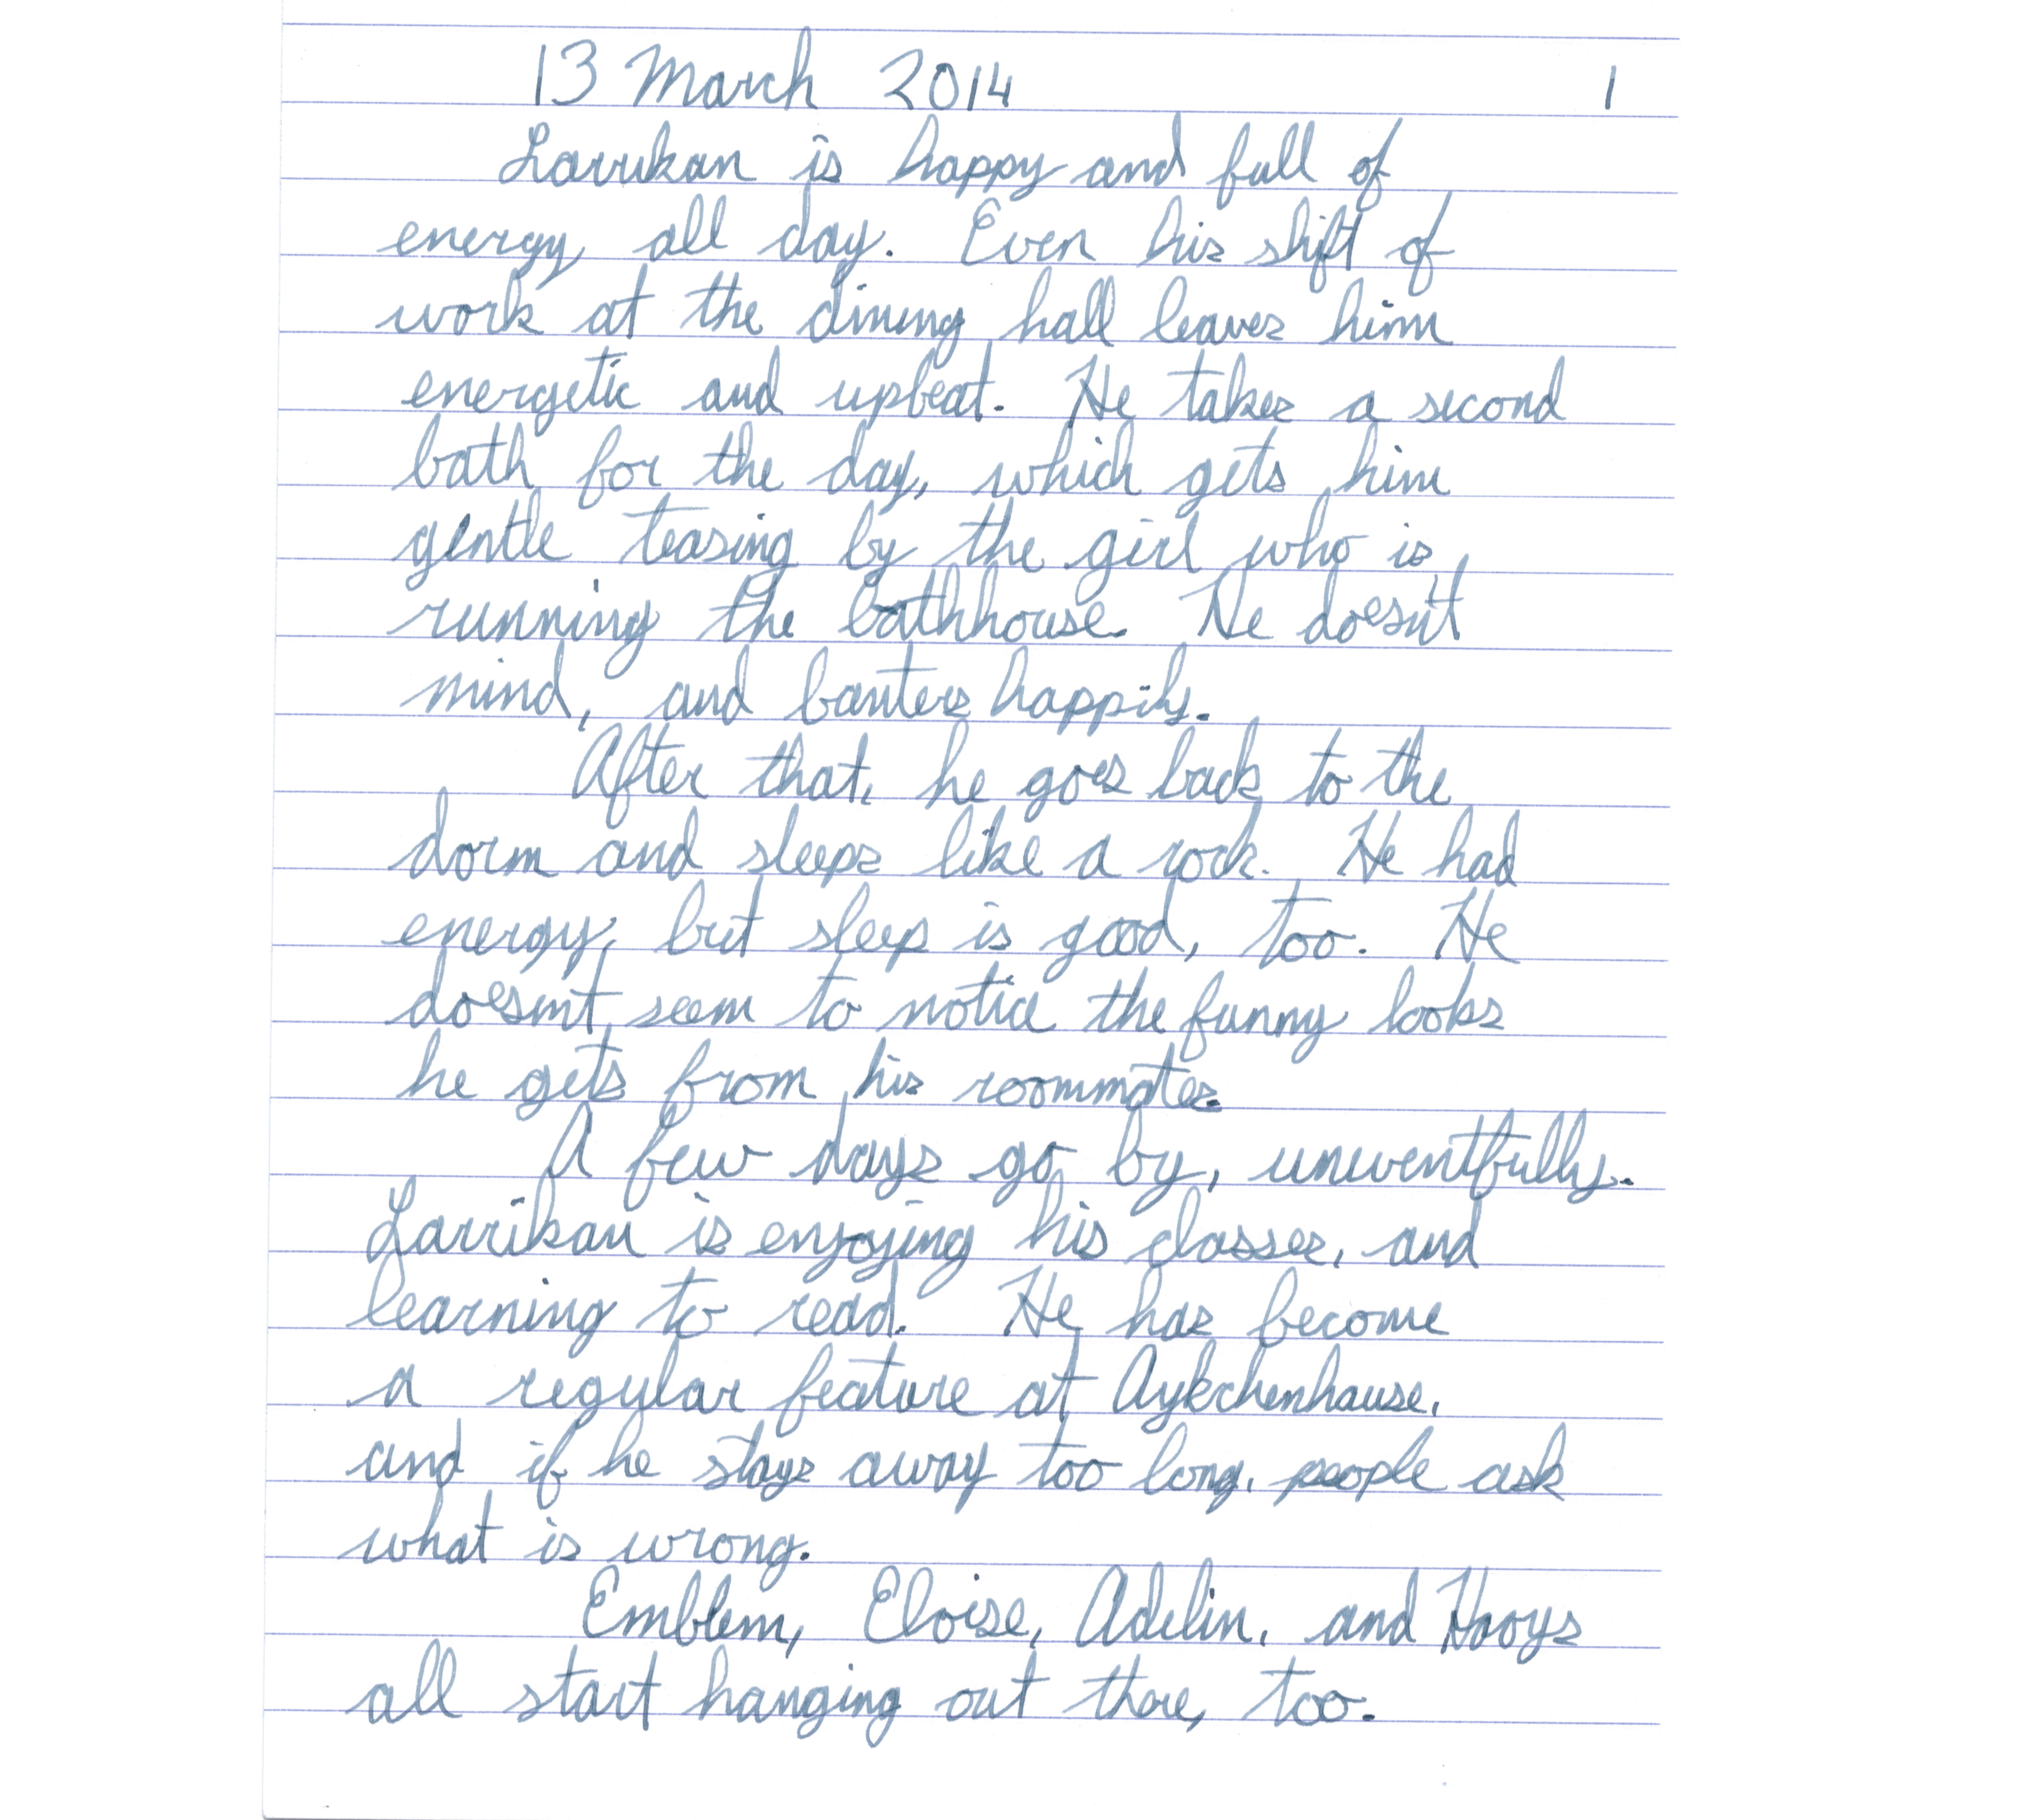 13 March 2014 1
Larrikan is happy and full of
energy all day. Even his shift of
work at the dining hall leaves him
energetic and upbeat. He takes a second
bath for the day, which gets him
gentle teasing by the girl who is
running the bathhouse. He doesn't
mind, and banters happily.
After that, he goes back to the
dorm and sleeps like a rock. He had
energy, but sleep is good, too. He
doesn't seem to notice the funny looks
he gets from his roommates.
A few days go by, uneventfully.
Larrikan is enjoying his classes, and
learning to read. He has become
a regular feature at Aykchenhause,
and if he stays away too long, people ask
what is wrong.
Emblem, Eloise, Adelin, and Haoys
all start hanging out there, too.